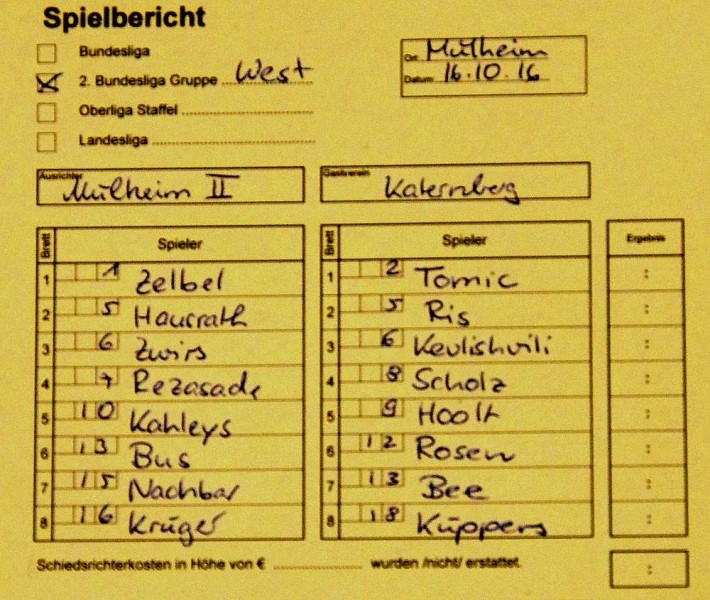 Spielbericht
Bundesliga
2. Bundesliga Gruppe West
Oberliga Staffel
Landesliga
Ort Mülheim
Datum 16.10.16
Ausrichter Mülheim II
Gastverein Katernberg
Brett Spieler Brett Spieler Ergebnis
1 1 Zelbel 1 2 Tomic :
2 5 Hausrath 2 5 Ris :
3 6 Zwirs 3 6 Kevlishvili :
4 7 Rezasade 4 8 Scholz :
5 10 Kahleys 5 9 Hoolt :
6 13 Bus 6 12 Rosen :
7 15 Nachbar 7 13 Bee :
8 16 Krüger 8 18 Küppers :
Schiedsrichterkosten in Höhe von € wurden /nicht/ erstattet. :